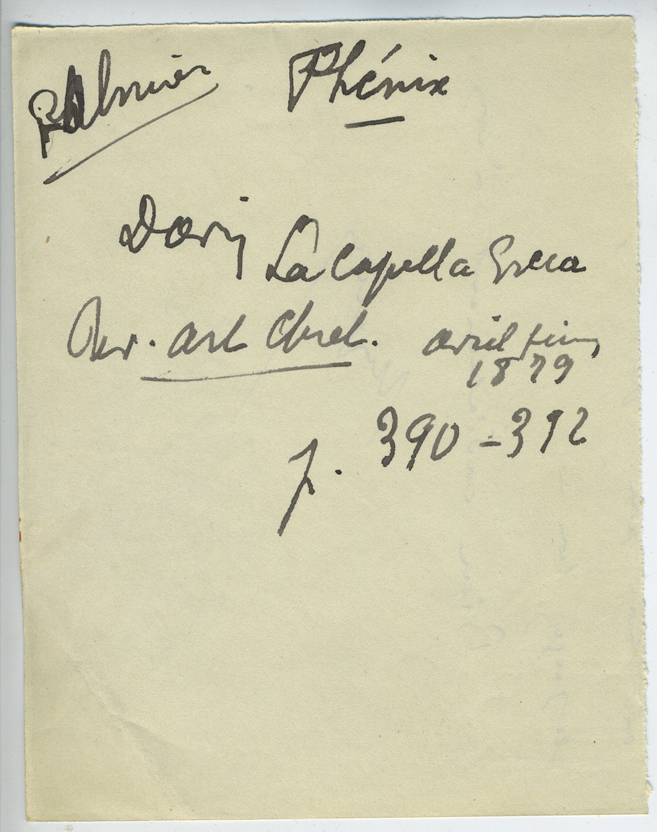 Palmier Phénix
Davin La Capella Greca
Rev. art Chret. avril juin
1879
p. 390-392